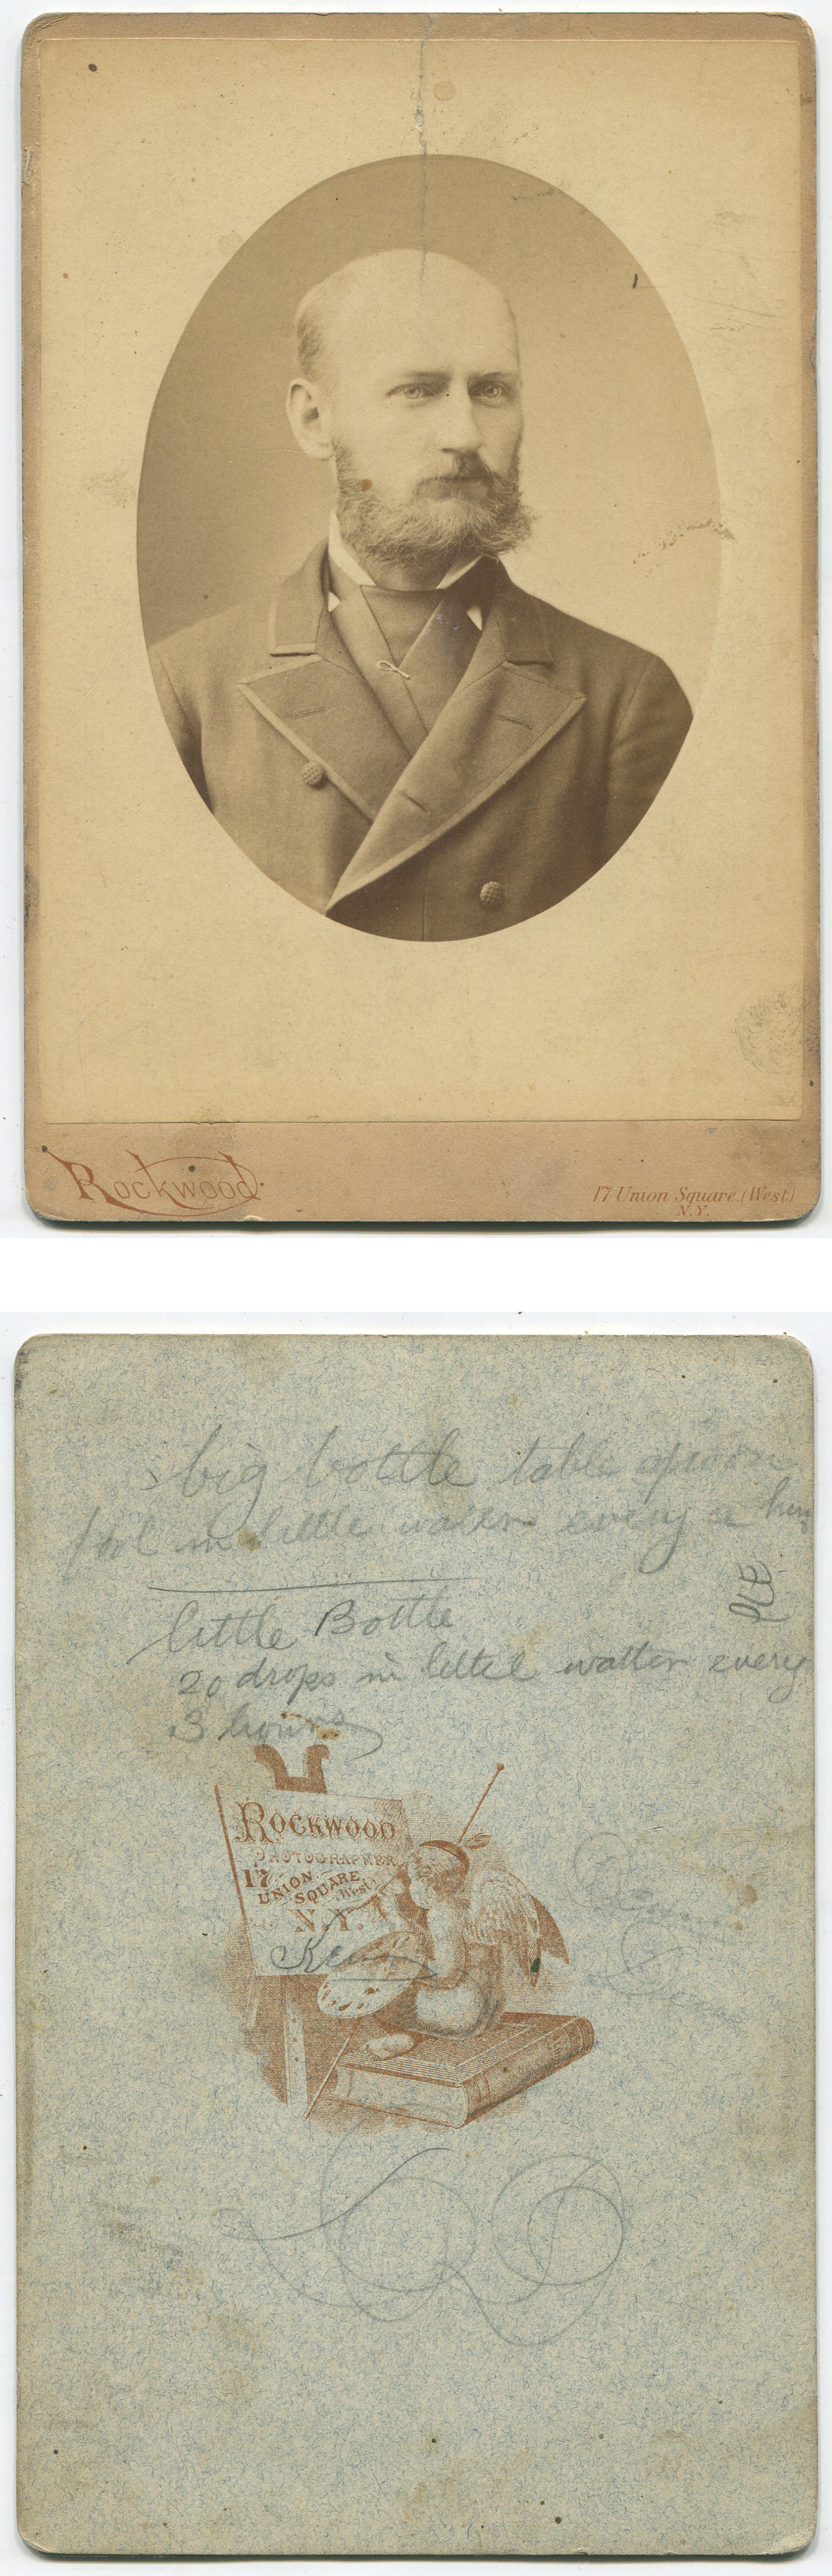 Rockwood
17 Union Square (West)
N.Y.
big bottle table spoon
in little watter every
little Bottle
20 drops in littel watter every
3 hours
ROCKWOOD
PHOTOGRAPHER
17
UNION
SQUARE
(West)
N.Y.